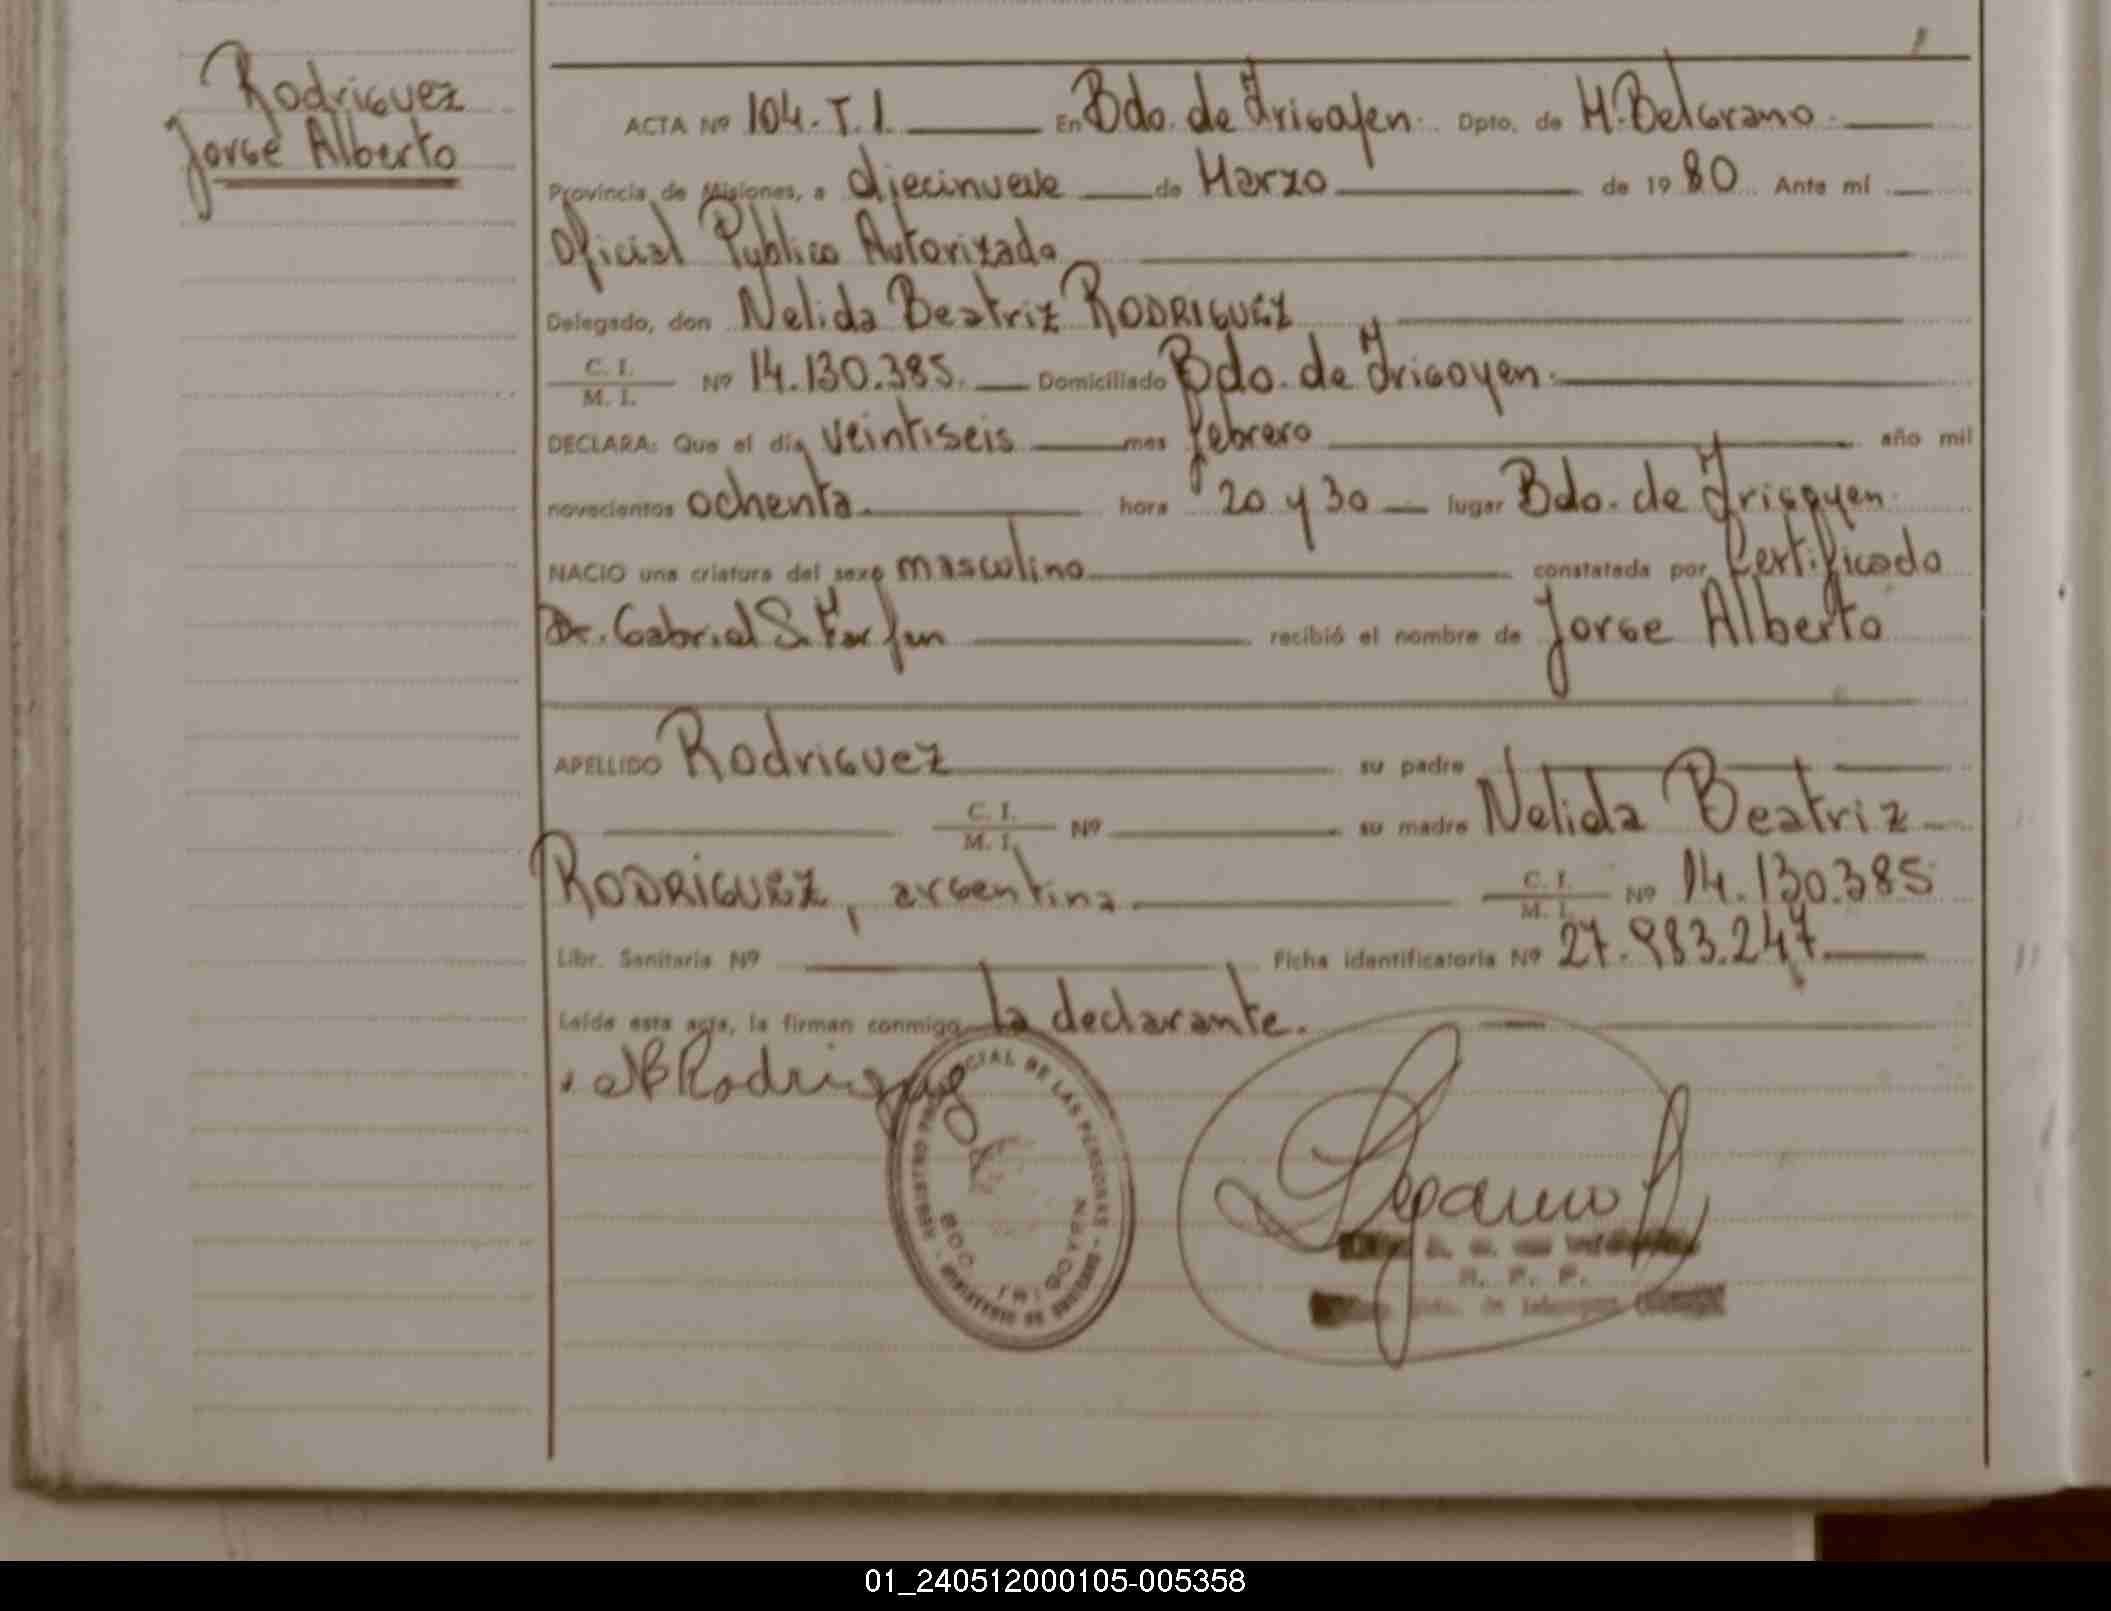 Rodriguez
Jorge Alberto
ACTA Nº 104. T. I. En Bdo. de Irigoyen. Dpto. de M. Belgrano.
Provincia de Misiones, a diecinueve de Marzo de 19 80 Ante mí
Oficial Publico Autorizado
Delegado, don Nelida Beatriz RODRIGUEZ
C. I.
M. I. Nº 14.130.385. Domiciliado Bdo. de Irigoyen.
DECLARA: Que el día veintiseis mes febrero año mil
novecientos ochenta hora 20 y 30 lugar Bdo. de Irigoyen.
NACIO una criatura del sexo masculino constatada por Certificado
Dr. Gabriel S. recibió el nombre de Jorge Alberto
APELLIDO Rodriguez su padre
C. I.
M. I. Nº su madre Nelida Beatriz
RODRIGUEZ, argentina C. I.
M. I. Nº 14.130.385
Libr. Sanitaria Nº Ficha identificatoria Nº 27.983.247
Leída esta acta, la firman conmigo la declarante.
NB Rodriguez
DE LAS PERSONAS
BDO. IRIGOYEN
MINISTERIO DE GOBIERNO
R. P. P.
01_240512000105-005358